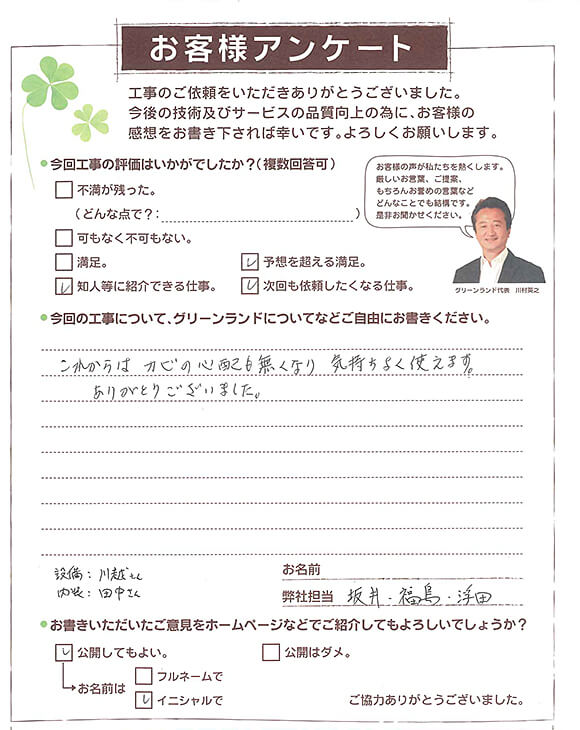 お客様アンケート
工事のご依頼をいただきありがとうございました。
今後の技術及びサービスの品質向上の為に、お客様の
感想をお書き下されば幸いです。よろしくお願いします。
今回工事の評価はいかがでしたか？（複数回答可）
不満が残った。
（どんな点で？：　）
可もなく不可もない。
満足。
予想を超える満足。
知人等に紹介できる仕事。
次回も依頼したくなる仕事。
お客様の声が私たちを熱くします。
厳しいお言葉、ご提案、
もちろんお誉めの言葉など
どんなことでも結構です。
是非お聞かせください。
グリーンランド代表　川村英之
今回の工事について、グリーンランドについてなどご自由にお書きください。
これからは カビの心配も無くなり 気持ちよく使えます。
ありがとうございました。
設備：川越さん
内装：田中さん
お名前
弊社担当 坂井・福島・浮田
お書きいただいたご意見をホームページなどでご紹介してもよろしいでしょうか？
公開してもよい。
公開はダメ。
お名前は
フルネームで
イニシャルで
ご協力ありがとうございました。